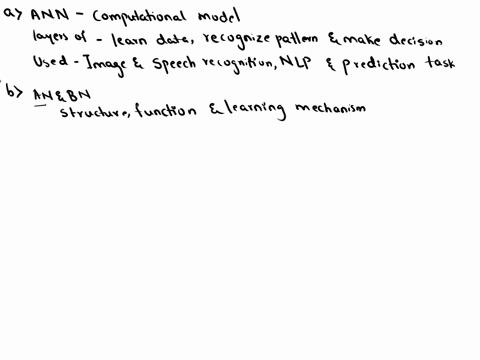 a> ANN - Computational model
layers of - learn data, recognize pattern & make decision
Used - Image & Speech recognition, NLP & prediction task
b> AN & BN
structure, function & learning mechanism